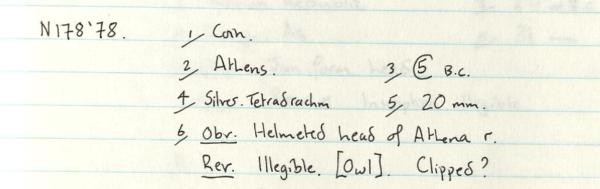 N178'78. 1, Coin.
2, Athens. 3, ⑤ B.C.
4, Silver. Tetradrachm 5, 20 mm.
6, Obv. Helmeted head of Athena r.
Rev. Illegible. [Owl]. Clipped?